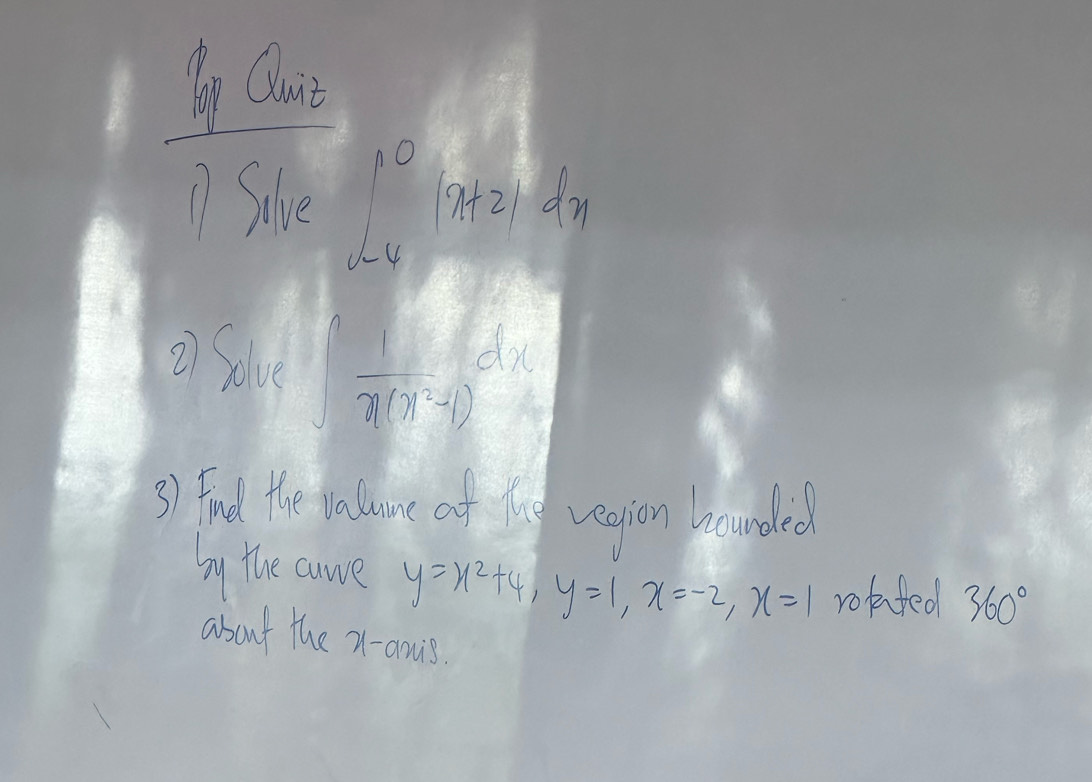 Pop Quiz
1) Solve ∫₋₄⁰ |x+2| dx
2) Solve ∫ 1/(x(x²-1)) dx
3) Find the volume of the region bounded
by the curve y=x²+4, y=1, x=-2, x=1 rotated 360°
about the x-axis.